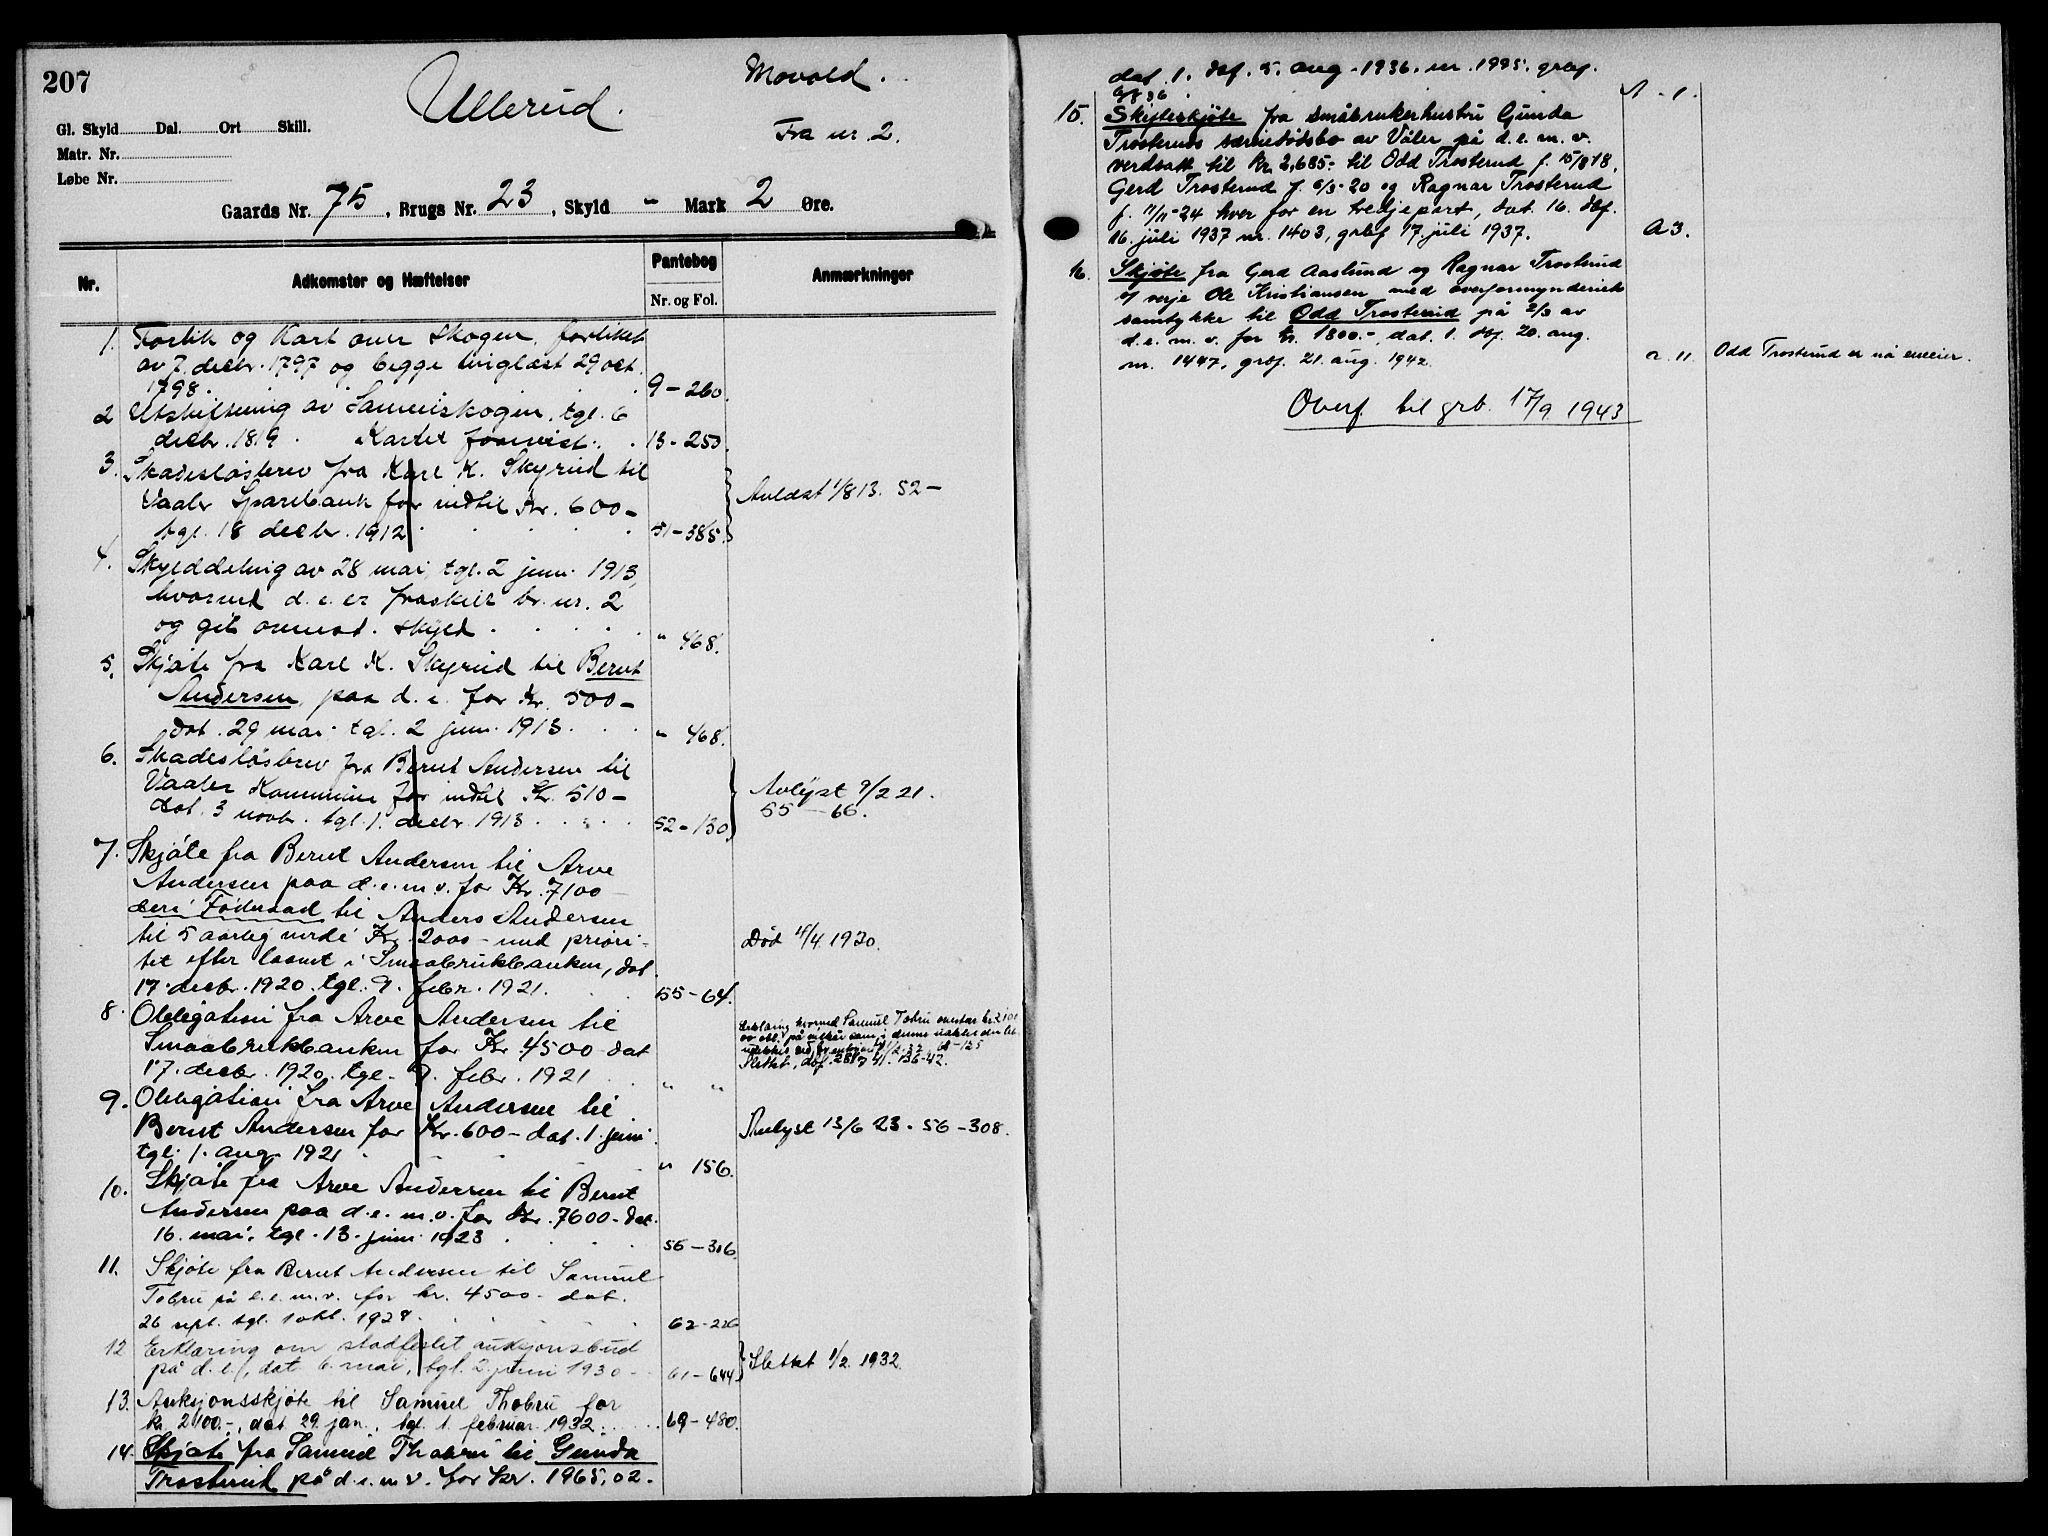 207
Ullerud.
Movold.
Fra nr. 2.
Gl. Skyld Dal. Ort Skill.
Matr. Nr.
Løbe Nr.
Gaards Nr. 75, Brugs Nr. 23, Skyld - Mark 2 Øre.
Nr. Adkomster og Hæftelser Pantebog Anmærkninger
Nr. og Fol.
1. Forlik og Kart over skogen, forliket
av 7. decbr. 1797 og begge tinglæst 29 oct.
1798. 9-260.
2 Utskiftning av Sameiskogen, tgl. 6
decbr. 1819. Kartet forevist. 13-253.
3. Skadesløsbrev fra Karl K. Skyrud til
Vaaler Sparebank for indtil Kr. 600-
tgl. 18 decbr. 1912. 51-385. Avlæst 1/8 13. 52-
4. Skylddeling av 28 mai, tgl. 2 juni 1913,
hvorved d. e. er fraskilt br. nr. 2
og git anmod. skyld. " 468.
5. Skjøte fra Karl K. Skyrud til Bernt
Andersen, paa d. e. for Kr. 500-
dat. 29 mai tgl. 2 juni 1913. " 468.
6. Skadesløsbrev fra Bernt Andersen til
Vaaler Kommune for indtil Kr. 510-
dat. 3 novb. tgl. 1. decbr. 1913. 52-130. Avlyst 9/2 21.
55-66.
7. Skjøte fra Bernt Andersen til Arve
Andersen paa d. e. m. v. for Kr. 7100
deri Føderaad til Anders Andersen
til 5 aarlig verdi Kr. 2000- med priori-
tet efter laanet i Smaabrukbanken, dat. Død 4/4 1930.
17. decbr. 1920. tgl. 9. febr. 1921. 55-64.
8. Obligation fra Arve Andersen til
Smaabrukbanken for Kr 4500 dat
17. decbr. 1920. tgl. 9. febr. 1921 " "
Erklæring hvorved Samuel Tobru overtar
Slettet, dbf. 136-42.
9. Obligation fra Arve Andersen til
Bernt Andersen for Kr. 600- dat. 1. juni Avlyst 13/6 23. 56-308.
tgl. 1. aug. 1921. " 156.
10. Skjøte fra Arve Andersen til Bernt
Andersen paa d. e. m. v. for Kr. 7600- dat.
16. mai, tgl. 13. juni 1923. 56-306.
11. Skjøte fra Bernt Andersen til Samuel
Tobru på d. e. m. v. for kr. 4500- dat.
26 sept. tgl. 1 okt. 1928. 62-226
12 Erklæring om stadfestet auksjonsbud
på d. e., dat. 6. mai, tgl. 2. juni 1930- 61-644 Slettet 1/2. 1932.
13. Auksjonsskjøte til Samuel Thobru for
kr. 2100.-, dat 29. jan., tgl. 1. februar 1932. 69-480.
14. Skjøte fra Samuel Thobru til Gunda
Trosterud på d. e. m. v. for kr. 1965,02.
dat. 1. dbf. 5. aug. 1936. nr. 1995. grbf.
6/8 36. A. 1.
15. Skifteskjøte fra småbrukerhustru Gunda
Trosteruds særeiedødsbo av Våler på d. e. m. v.
verdsatt til kr. 2,685.- til Odd Trosterud f. 15/8 18,
Gerd Trosterud f. 6/5-20 og Ragnar Trosterud
f. 11/11-24 hver for en tredjepart, dat. 16. dbf.
16. juli 1937 nr. 1403, grbf 17. juli 1937. A 3.
16. Skjøte fra Gerd Aaslund og Ragnar Trosterud
v/ verje Ole Kristiansen med overformynderiets
samtykke til Odd Trosterud på 2/3 av
d. e. m. v. for kr. 1800.-, dat. 1. dbf. 20. aug.
nr. 1447, grbf. 21. aug. 1942. a. 11. Odd Trosterud er nå eneeier.
Overf. til grb. 17/9 1943